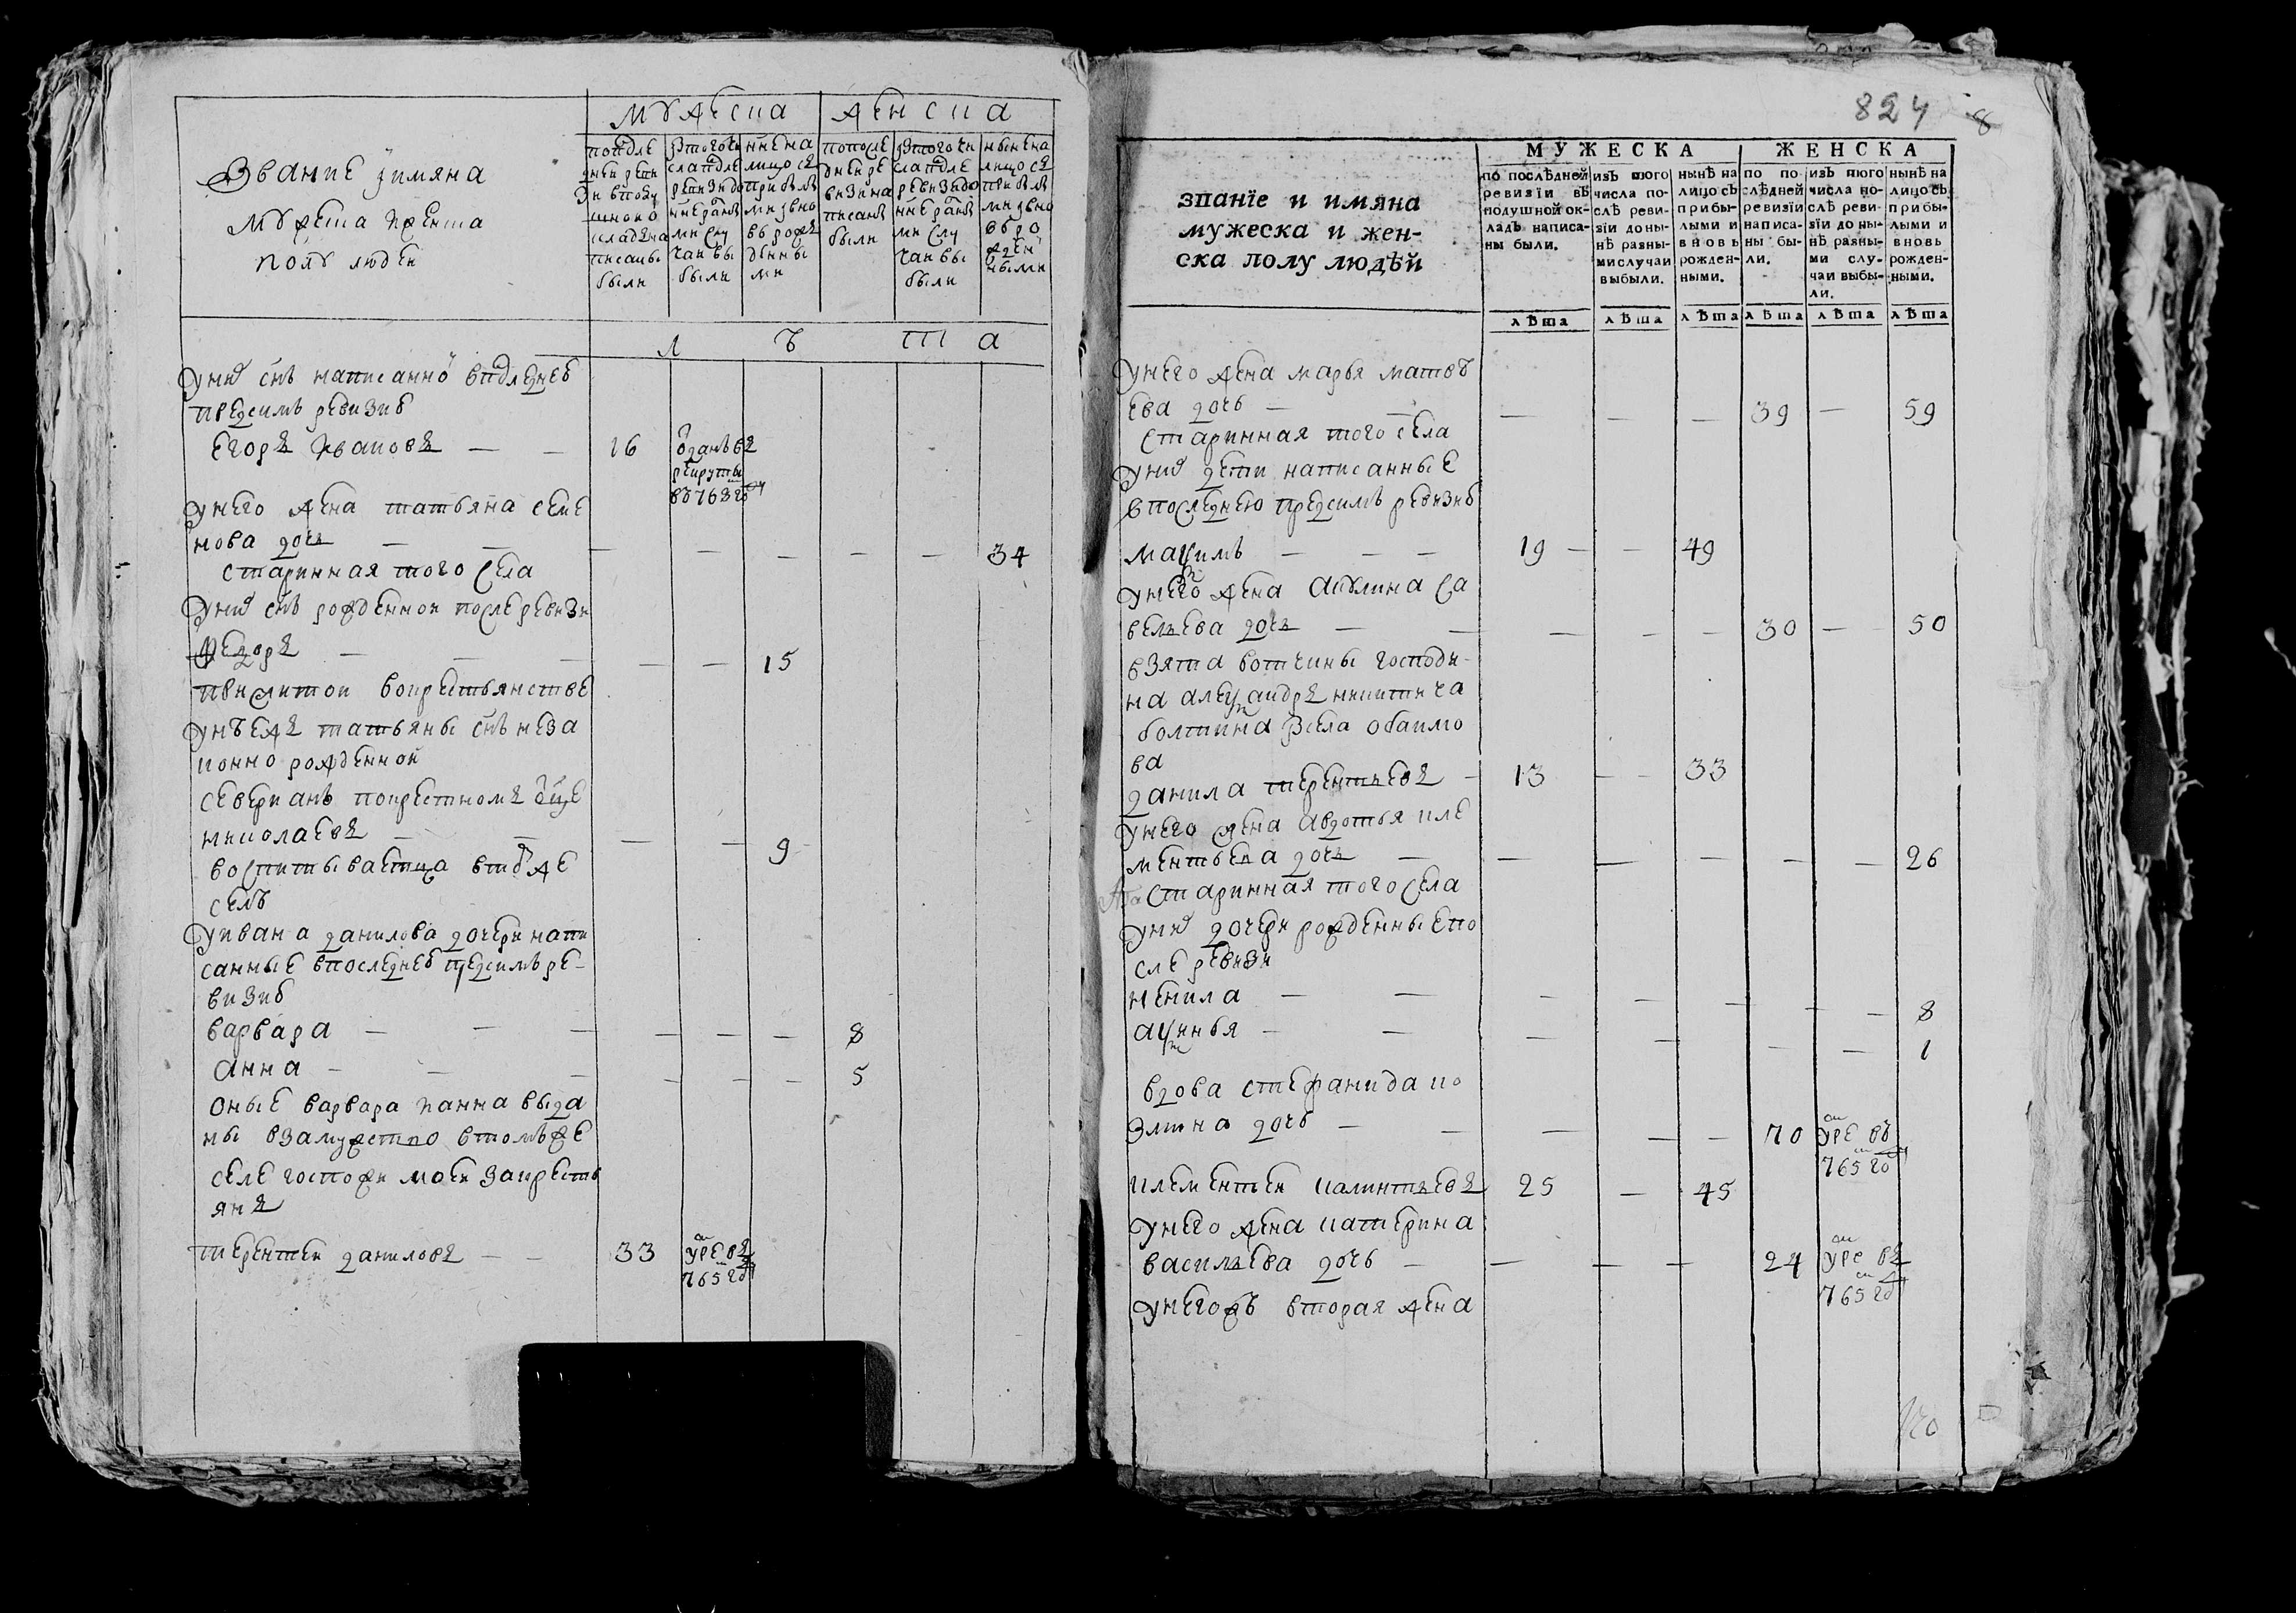 Званіе ӥимяна
мужеска ижѣнска
полу людеи
мужеска
женска
попосле
днеи реви
зи вподу
шномо
кладе на
писаны
были
изтого чи
сла после
ревизи до
ныне разны
ми слу
чаи вы
были
ныне на
лицо съ
прибылы
ми и вно
въ рожде
нны
ми
попосле
днеи ре
визи на
писаны
были
изтого чи
сла после
ревизи до
ныне разны
ми слу
чаи вы
были
ныне на
лицо съ
прибылы
ми и вно
въ ро
жден
ными
л ѣ т а
унихъ снъ написанной впоследнею
предсимъ ревизию
егоръ Ивановъ — — 16 отданъ въ
рекруты
въ 768 году
унего жена татьяна семе
нова дочь — — — — — — — 34
старинная того села
унихъ снъ рожденнои после ревизи
Федоръ — — — — — 15
причитои вокрестьянстве
унѣежъ татьяны снъ неза
конно рожденной
северианъ покрестномъ отце
николаевъ — — — — 9
воспитываетца втомже
селѣ
уивана данилова дочери напи
санные впоследнею предсимъ ре-
визию
варвара — — — — — — 8
анна — — — — — — 5
оные варвара ианна выда
ны взамужство втомъже
селе госпожи моеи закресть
янъ
терентеи даниловъ — — 33 умре въ
765 году
824 8
званїе и имяна
мужеска и жен-
ска полу людѣй
МУЖЕСКА
ЖЕНСКА
по послѣдней
ревизїи въ
подушной ок-
ладъ написа-
ны были.
изъ того
числа по-
слѣ реви-
зїи до ны-
нѣ разны-
ми случаи
выбыли.
нынѣ на
лицо съ
прибы-
лыми и
вновь
рожден-
ными.
по по-
слѣдней
ревизїи
написа-
ны бы-
ли.
изъ того
числа по-
слѣ реви-
зїи до ны-
нѣ разны-
ми слу-
чаи выбы-
ли.
нынѣ на
лицо съ
прибы-
лыми и
вновь
рожден-
ными.
лѣта лѣта лѣта лѣта лѣта лѣта
унего жена марья матвѣ
ева дочь — — — — — 39 — 59
старинная того села
унихъ дети написанные
впоследнею предсимъ ревизию
максимъ — — — 19 — — 49
унего жена акулина са
вельева дочь — — — — — 30 — 50
взята вотчины господи-
на александръ никитича
болтина изсела обаимо
ва
данила терентьевъ — 13 — — 33
унего жена авдотья кле
ментьева дочь — — — — — — 26
старинная того села
унихъ дочери рожденные по
сле ревизи
ненила — — — — — — — 8
аксинья — — — — — — — 1
вдова стефанида ко
змина дочь — — — — — 70 умре въ
765 году
клементеи калинтьевъ 25 — 45
унего жена катерина
васильева дочь — — — — 24 умре въ
765 году
унегожъ вторая жена